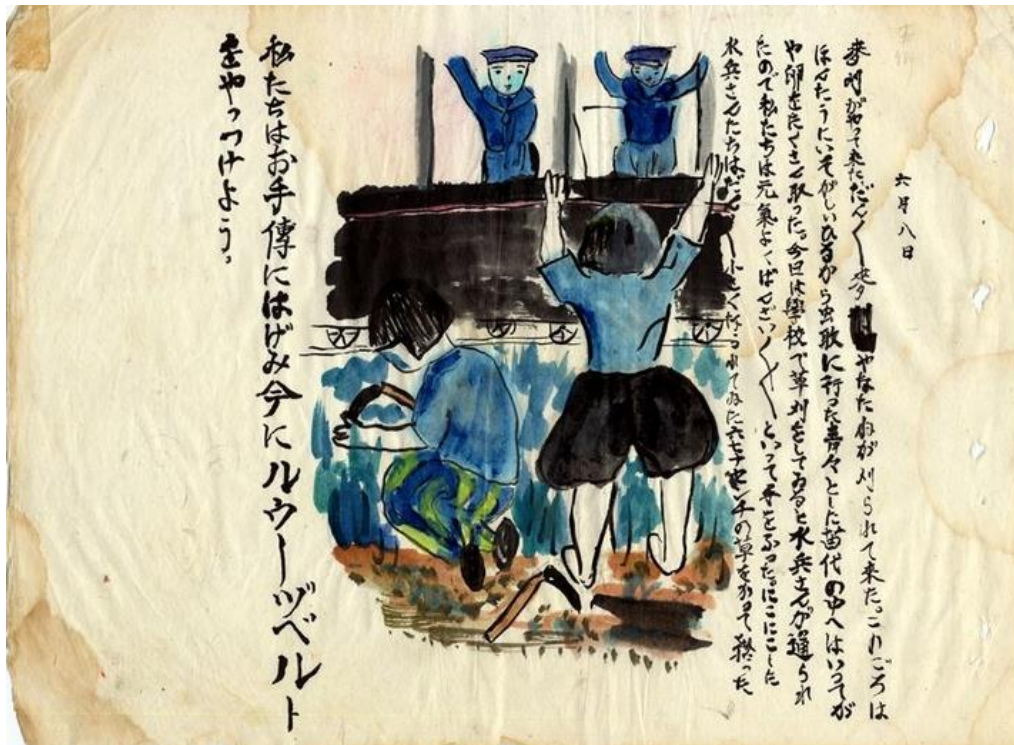 六月八日
麥刈がやって来ただん〳〵麥やなたねが刈られて来た。これごろは
ほんたうにいそがしいひるから虫取に行った青々とした苗代の中へはいってが
や卵をたくさん取った。今日は學校で草刈をしてゐると水兵さんが通られ
たので私たちは元氣よくばんざい〳〵といって手をふった。にこにこした
水兵さんたちはだん〳〵小さくなられてゐた六七十センチの草をかって終った
私たちはお手傳にはげみ今にルウーヅベルト
をやっつけよう。